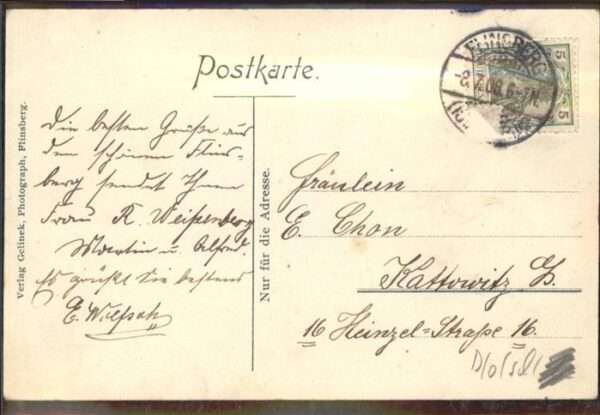 Postkarte.
FLINSBERG
8.7.08.6-7N.
5
5
Die besten Grüße aus
dem schönen Flins-
berg sendet Ihnen
Frau R. Weißenberg
Martin u. Alfred.
Es grüßt Sie bestens
E.
Verlag Gelinek, Photograph, Flinsberg.
Nur für die Adresse.
Fräulein
E. Chon
Kattowitz
16 Heinzel=Straße 16.